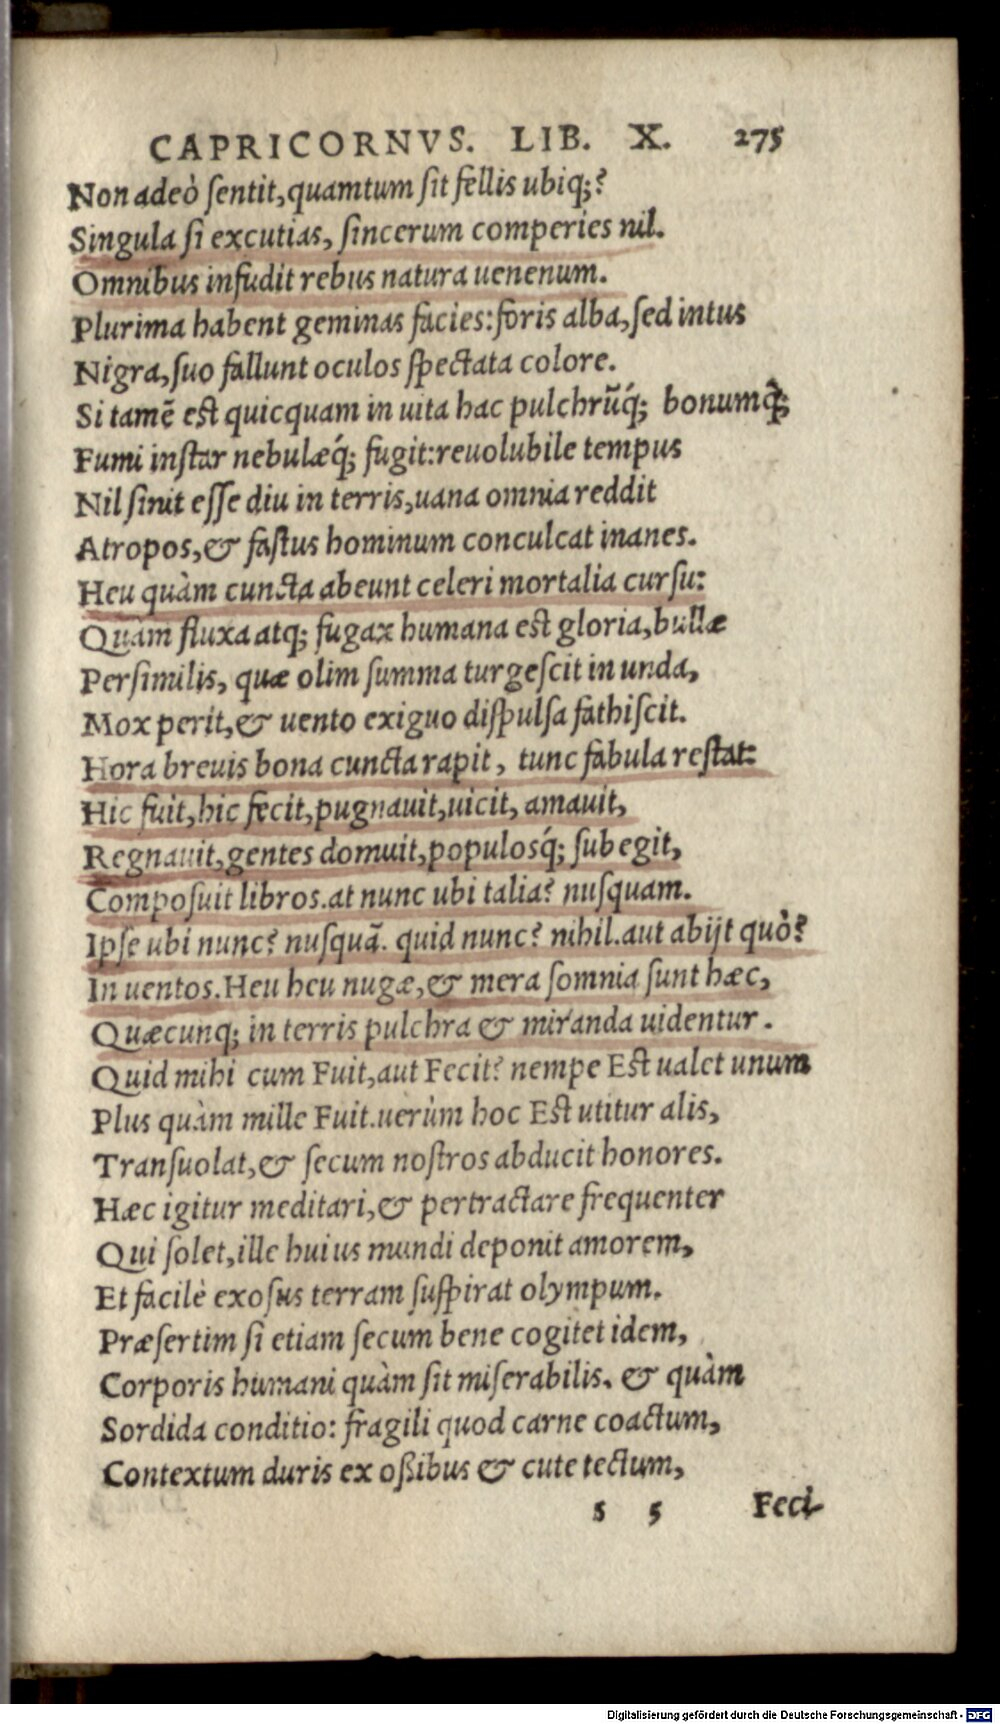 CAPRICORNVS. LIB. X. 275
Non adeò ſentit, quamtum ſit fellis ubiq;?
Singula ſi excutias, ſincerum comperies nil.
Omnibus infudit rebus natura uenenum.
Plurima habent geminas facies: foris alba, ſed intus
Nigra, ſuo fallunt oculos ſpectata colore.
Si tamẽ est quicquam in uita hac pulchrũq́; bonumq́;
Fumi inſtar nebulæq́; fugit: reuolubile tempus
Nil ſinit eſſe diu in terris, uana omnia reddit
Atropos, & faſtus hominum conculcat inanes.
Heu quàm cuncta abeunt celeri mortalia curſu:
Quàm fluxa atq; fugax humana est gloria, bullæ
Perſimilis, quæ olim ſumma turgeſcit in unda,
Mox perit, & uento exiguo diſpulſa fathiſcit.
Hora breuis bona cuncta rapit, tunc fabula reſtat:
Hic fuit, hic fecit, pugnauit, uicit, amauit,
Regnauit, gentes domuit, populosq́; ſubegit,
Compoſuit libros. at nunc ubi talia? nuſquam.
Ipſe ubi nunc? nuſquã. quid nunc? nihil. aut abijt quò?
In uentos. Heu heu nugæ, & mera ſomnia ſunt hæc,
Quæcunq; in terris pulchra & miranda uidentur.
Quid mihi cum Fuit, aut Fecit? nempe Est ualet unum
Plus quàm mille Fuit. uerùm hoc Est utitur alis,
Tranſuolat, & ſecum noſtros abducit honores.
Hæc igitur meditari, & pertractare frequenter
Qui ſolet, ille huius mundi deponit amorem,
Et facilè exoſus terram ſuſpirat olympum.
Præſertim ſi etiam ſecum bene cogitet idem,
Corporis humani quàm ſit miſerabilis. & quàm
Sordida conditio: fragili quod carne coactum,
Contextum duris ex oßibus & cute tectum,
s 5 Feci-
Digitalisierung gefördert durch die Deutsche Forschungsgemeinschaft - DFG